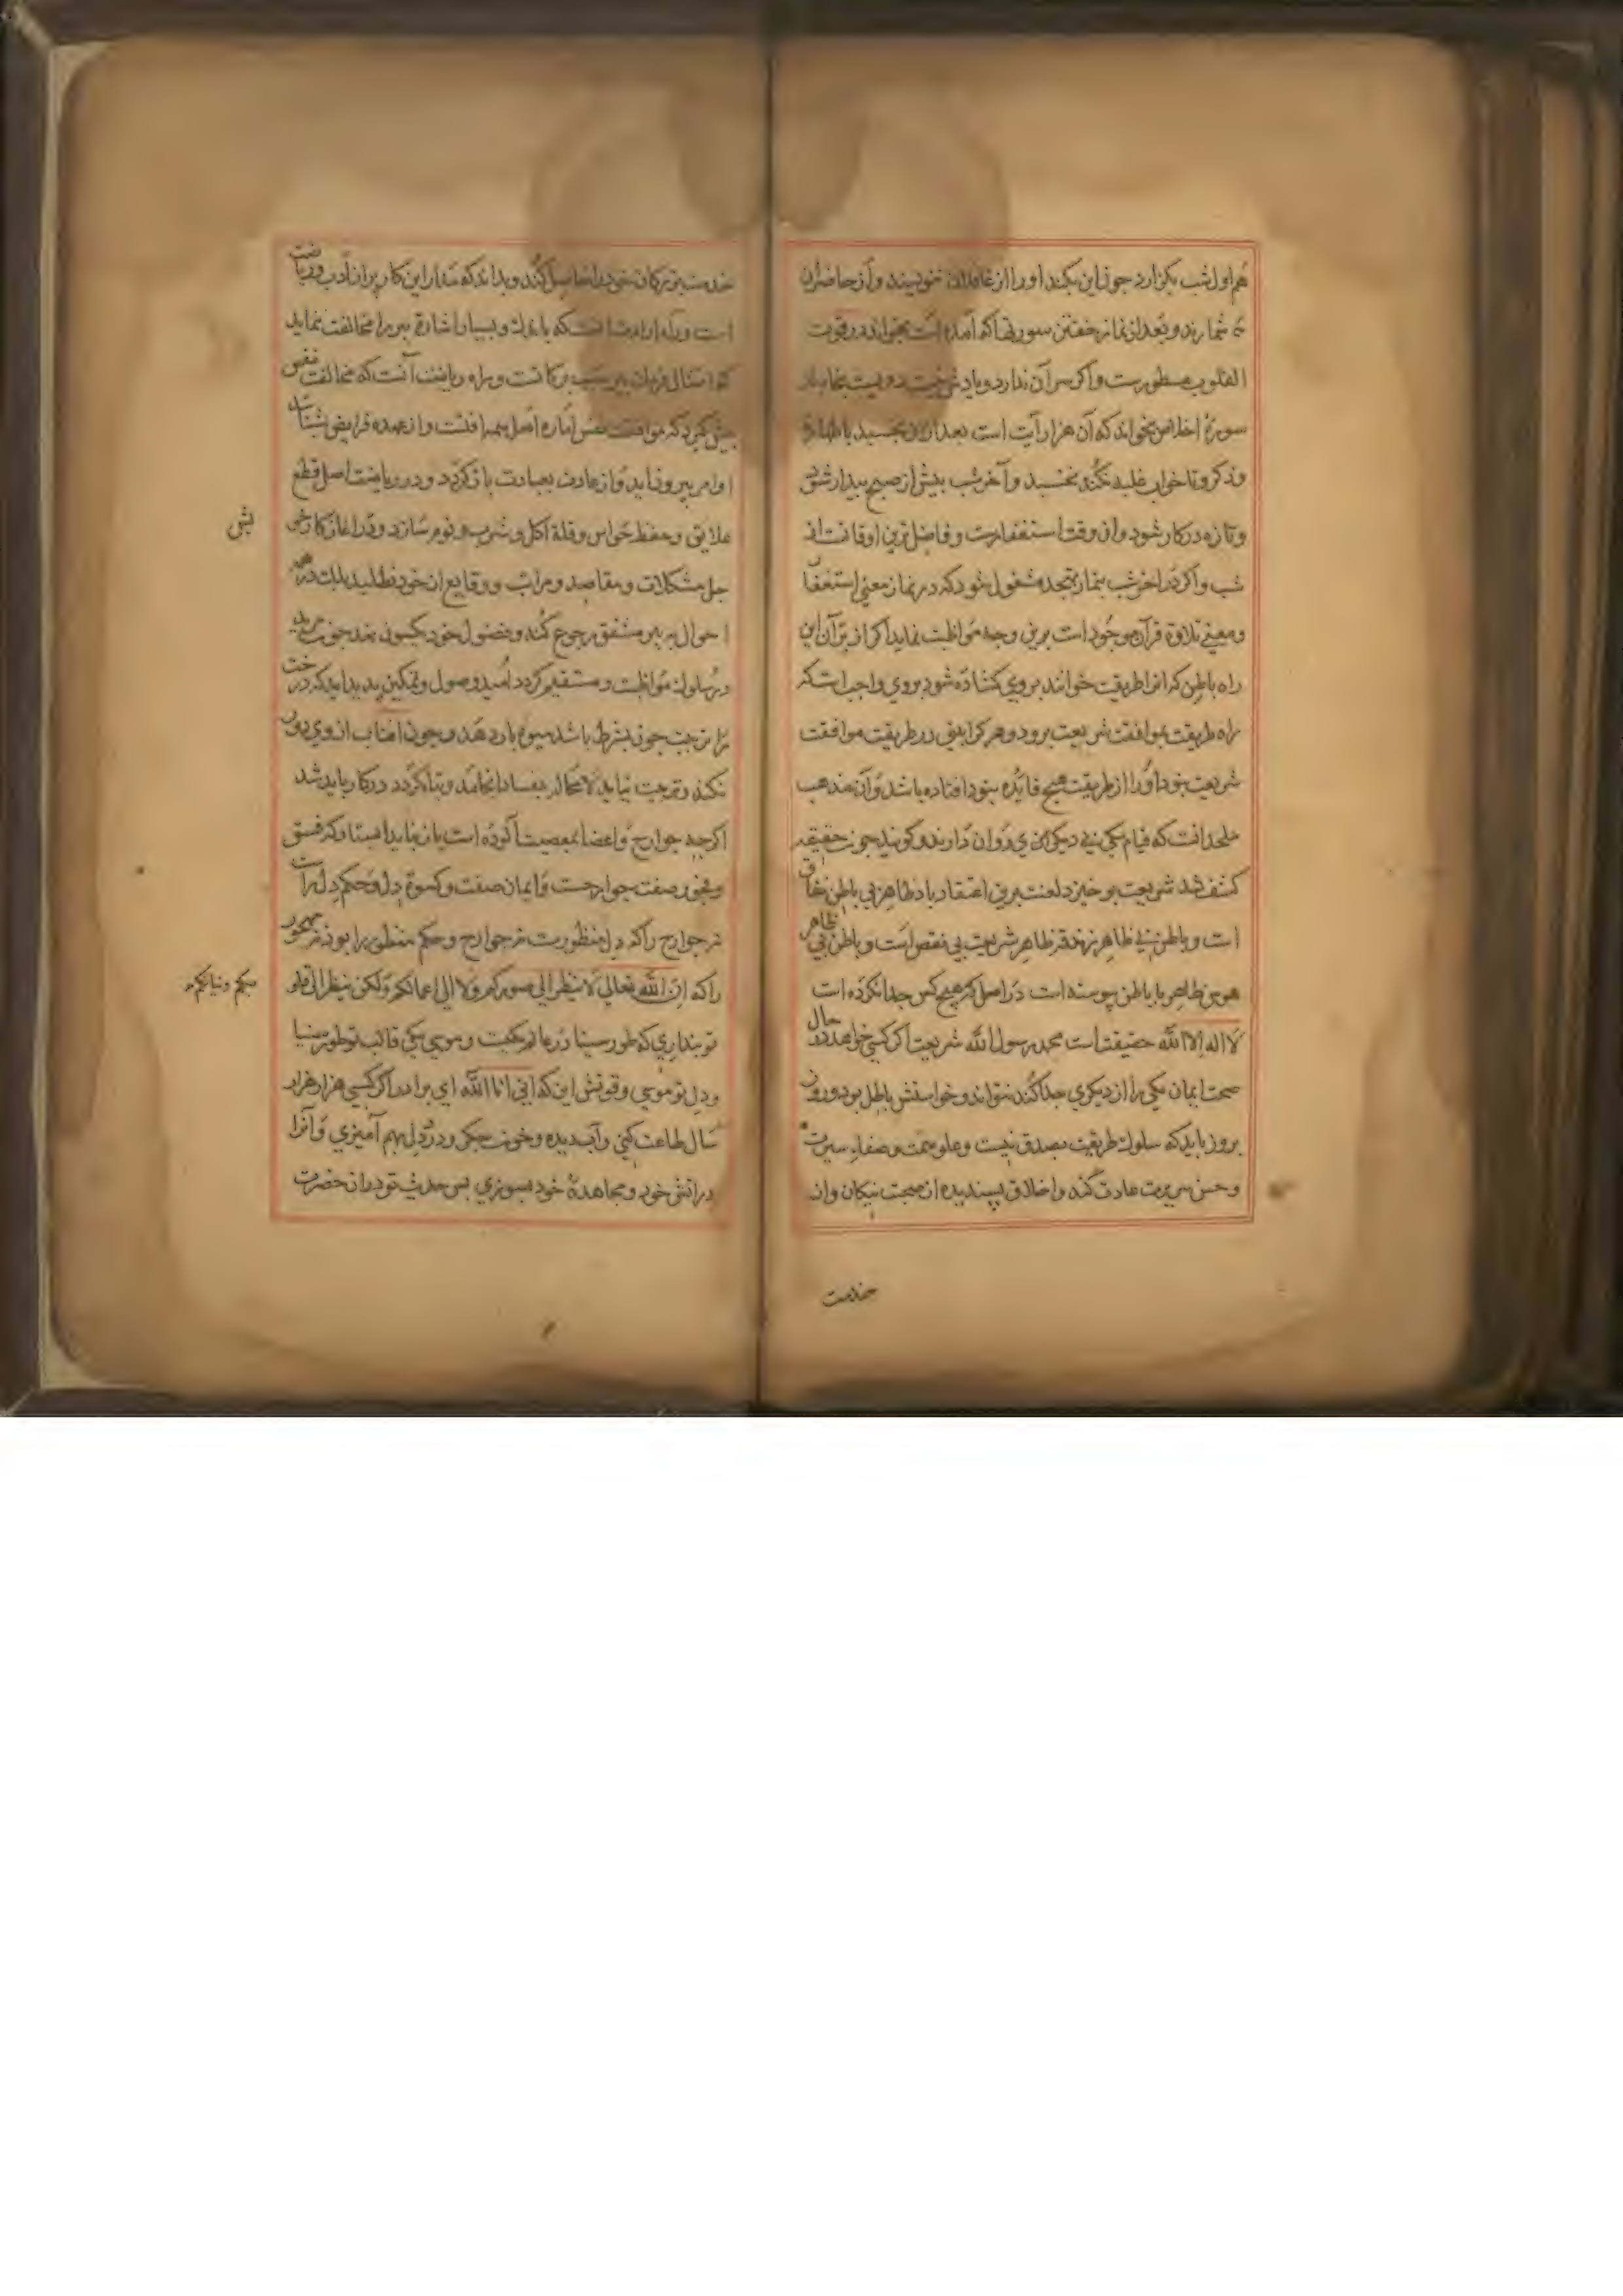 هم اول شب بکزارد جون این بکند او را از غافلان ننویسند و از حاضران
شمارند و بعد از نماز خفتن سورتها که آمده است بخواند در قوت
القلوب مسطورست و اکر سر آن ندارد و یاد
سورة اخلاص بخواند که آن هزار آیت است بعد ازان بخسبد باطهارة
و ذکر و تا خواب غلبه نکند نخسبد و آخر شب بیش از صبح بیدار شود
و تازه در کار شود و ان وقت استغفارست و فاضل ترین اوقاتست از
شب و اکر در اخر شب بنماز تهجد مشغول شود که در نماز معنی استغفار
و معنی تلاوة قرآن موجود است برین وجه مواظبت نماید اکر از برآن این
راه باطن که انرا طریقت خوانند بروی کشاده شود بروی واجب است که
راه طریقت بموافقت شریعت برود و هر کرا بینی در طریقت موافقت
شریعت نبود او را از طریقت هیچ فایده نبود افتاده باشد و آن مذهب
ملحدانست که قیام یکی بی دیکری روان دارند و کویند جون حقیقة
کشف شد شریعت برخیزد لعنت برین اعتقاد باد ظاهر بی باطن نفاق
است و باطن بی ظاهر زندقه ظاهر شریعت بی نقص است و باطن بی ظاهر
هوس ظاهر با باطن بیوسته است در اصل که هیچ کس جدا نکرده است
لا اله الا الله حقیقت است محمد رسول الله شریعت اکر کسی خواهد در حال
صحت ایمان یکی را از دیکری جدا کند نتواند و خواستش باطل بود و روز
بروز باید که سلوک طریقت بصدق نیت و علو همت و صفاء سیرت
و حسن سریرت عادت کند و اخلاق پسندیده از صحبت نیکان و از
خدمت
خدمت بزرکان خود را حاصل کند و بداند که مدار این کار بر ادب و ریاضت
است و راه
که امتثال فرمان پیر سبب برکاتست و راه ریاضت آنست که مخالفت نفس
بیش کیرد که موافقت نفس اماره اصل همه افتست و از عهده فرایض
اوامر بیرون اید و از عادت بعبادت باز کردد و در ریاضت اصل قطع
علایق و حفظ حواس و قلة اکل و شرب و نوم سازد و در اغاز کار
حل مشکلات و مقاصد و مراتب و وقایع از خود نطلبد بلک در همه
احوال به پیر مشفق رجوع کند و فضول خود یکسون نهد جون مرید
در سلوک مواظبت و مستقیم کردد امید وصول و تمکین پدید اید که درخت
را تربیت جون بشرط باشد میوه بار دهد و جون افتاب از وی دور
نکند و تربیت نیابد لامحاله بفساد انجامد و تباه کردد در کار باید شد
اکرجه جوارح و اعضا بمعصیت آلوده است باز نباید استاد که فسق
و فجور صفت جوارحست و ایمان صفت و کسوة دل و حکم دل راست
نه جوارح را که دل منظورست نه جوارح و حکم منظور را بود نه مهجور
را که ان الله تعالی لا ینظر الی صورکم ولا الی اعمالکم ولکن ینظر الی قلو
بکم ونیاتکم
تو بنداری که طور سینا در عالم یکیست و موسی یکی قالب تو طور سینا
و دل تو موسی و قوتش این که انی انا الله ای برادر اکر کسی هزار هزار
سال طاعت کنی و آب دیده و خون جکر و درد دل بهم آمیزی و آنرا
در اتش خود و مجاهدة خود بسوزی بس حدیث تو در ان حضرت